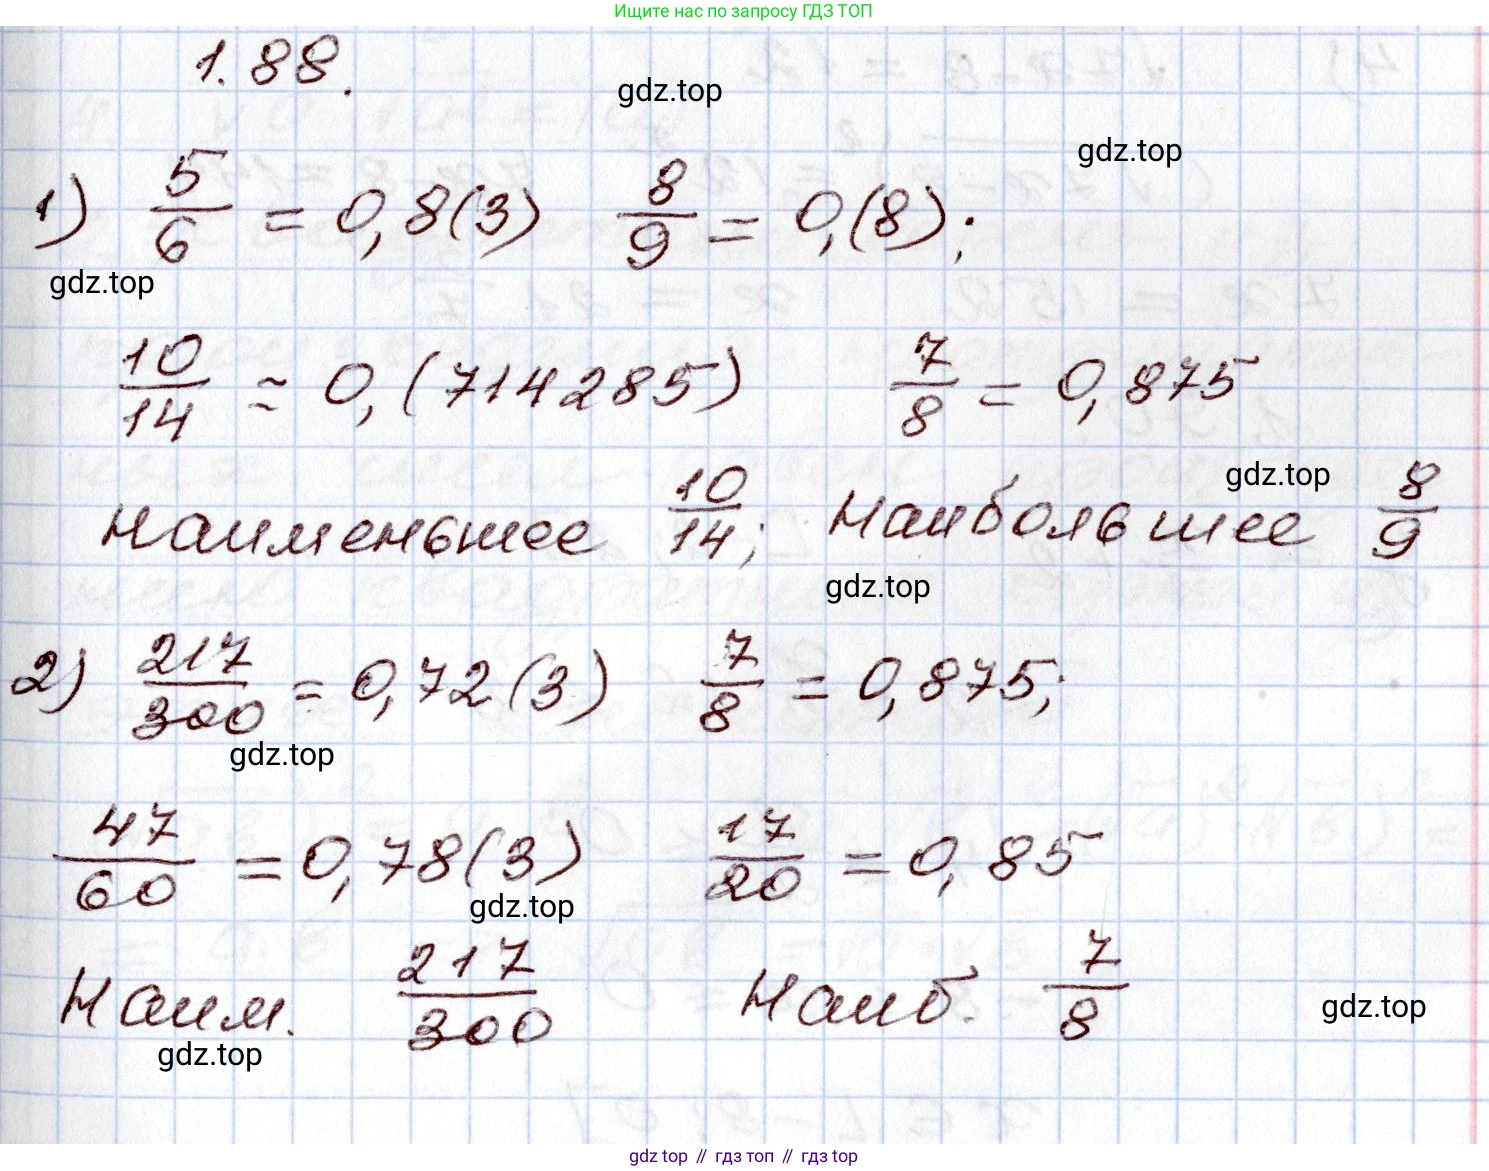 Ищите нас по запросу ГДЗ ТОП
1.88.
gdz.top
gdz.top
1) 5/6 = 0,8(3) 8/9 = 0,(8);
gdz.top
10/14 ≈ 0,(714285) 7/8 = 0,875
gdz.top
наименьшее 10/14; Наибольшее 8/9
gdz.top
2) 217/300 = 0,72(3) 7/8 = 0,875;
gdz.top
47/60 = 0,78(3) 17/20 = 0,85
gdz.top
Наим. 217/300 Наиб. 7/8
gdz.top
gdz.top
gdz top // гдз топ // гдз top